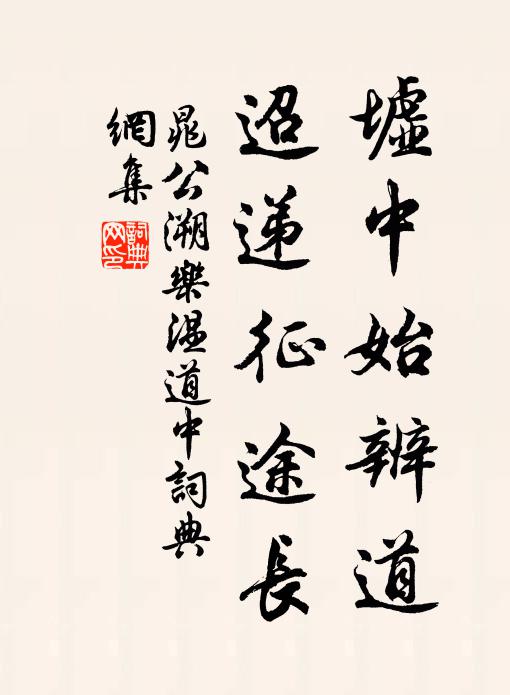 墟中始辨道
迢递征途長
晁公溯樂温道中詞典
網集
詞典网印